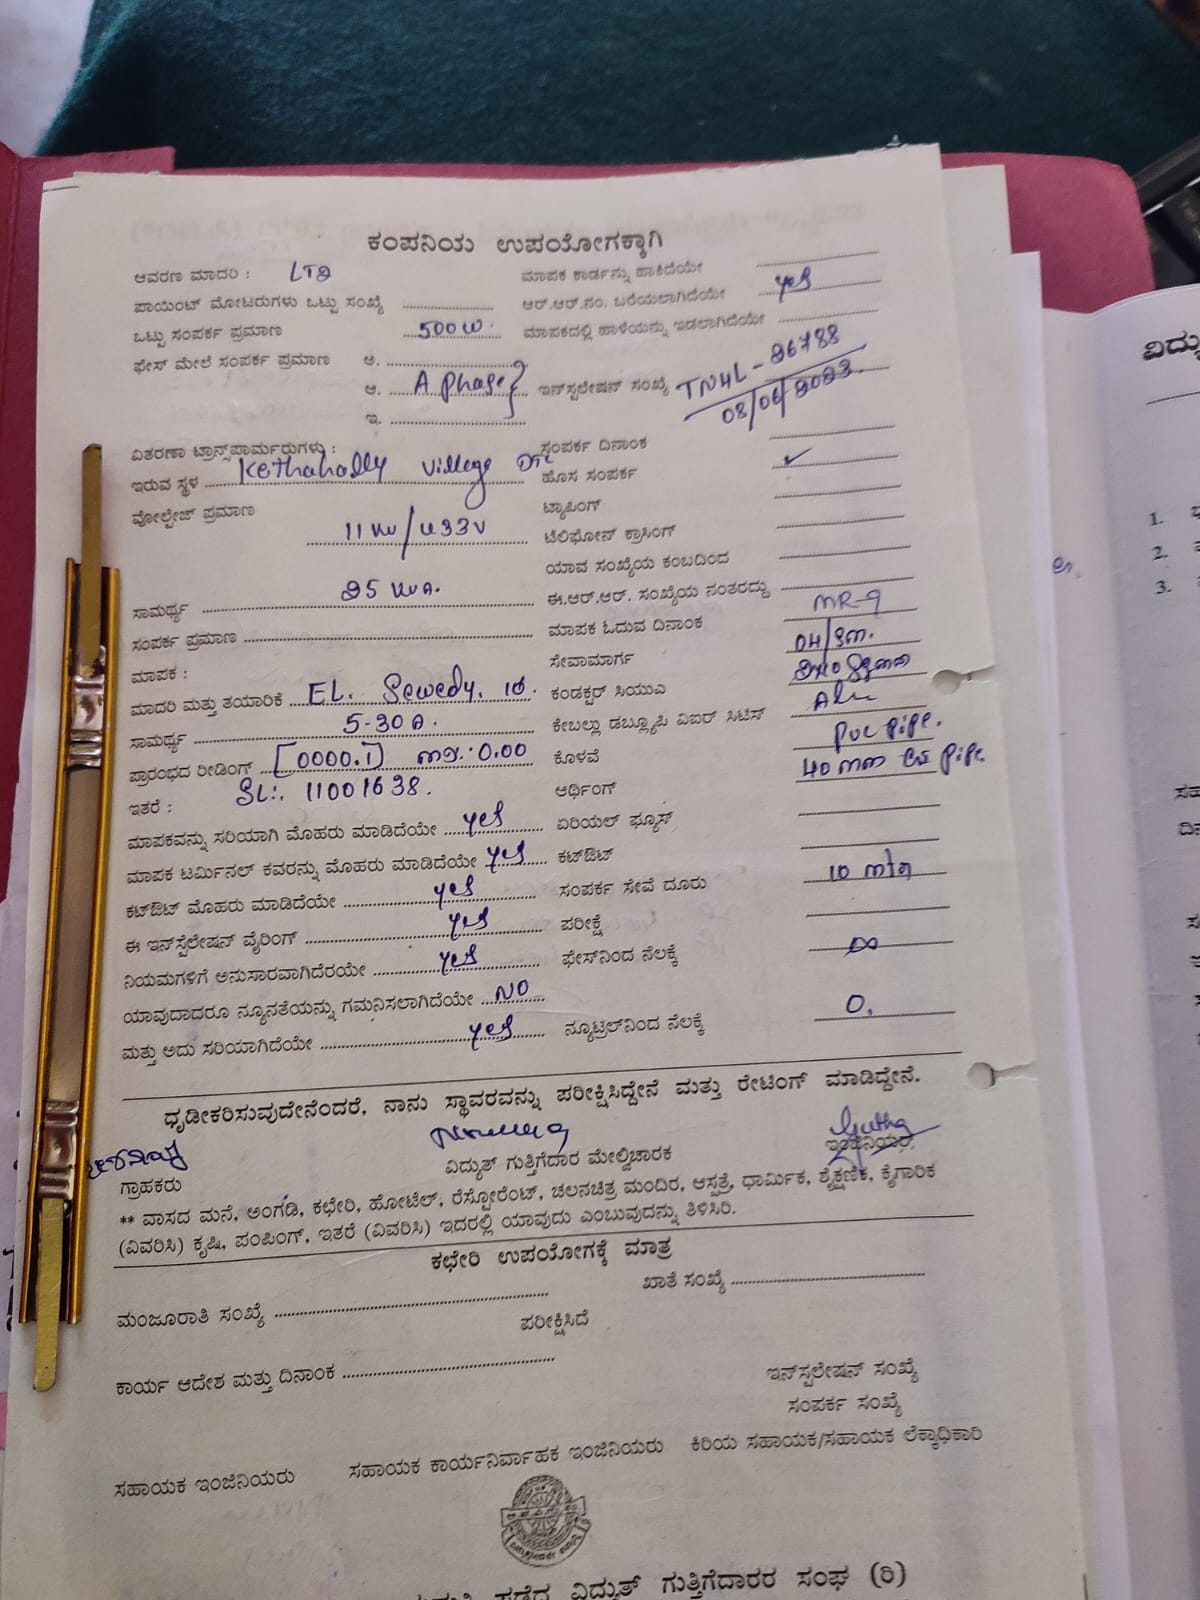 ಕಂಪನಿಯ ಉಪಯೋಗಕ್ಕಾಗಿ
ಆವರಣ ಮಾದರಿ : LT2 ಮಾಪಕ ಕಾರ್ಡನ್ನು ಹಾಕಿದೆಯೇ
ಪಾಯಿಂಟ್ ಮೋಟರುಗಳು ಒಟ್ಟು ಸಂಖ್ಯೆ ಆರ್.ಆರ್.ನಂ. ಬರೆಯಲಾಗಿದೆಯೇ yes
ಒಟ್ಟು ಸಂಪರ್ಕ ಪ್ರಮಾಣ 500W. ಮಾಪಕದಲ್ಲಿ ಹಾಳೆಯನ್ನು ಇಡಲಾಗಿದೆಯೇ
ಫೇಸ್ ಮೇಲೆ ಸಂಪರ್ಕ ಪ್ರಮಾಣ ಅ.
ಆ. A phase ಇನ್‌ಸ್ಪಲೇಷನ್ ಸಂಖ್ಯೆ TN4L-26788
ಇ. 08/06/2023.
ವಿತರಣಾ ಟ್ರಾನ್ಸ್‌ಪಾರ್ಮರುಗಳು : ಸಂಪರ್ಕ ದಿನಾಂಕ
ಇರುವ ಸ್ಥಳ Kethahally village ಹೊಸ ಸಂಪರ್ಕ ✓
ವೋಲ್ಟೇಜ್ ಪ್ರಮಾಣ 11 KV/433V ಟ್ಯಾಪಿಂಗ್
ಟೆಲಿಫೋನ್ ಕ್ರಾಸಿಂಗ್
ಯಾವ ಸಂಖ್ಯೆಯ ಕಂಬದಿಂದ
ಸಾಮರ್ಥ್ಯ 25 KVA. ಈ.ಆರ್.ಆರ್. ಸಂಖ್ಯೆಯ ನಂತರದ್ದು
ಸಂಪರ್ಕ ಪ್ರಮಾಣ ಮಾಪಕ ಓದುವ ದಿನಾಂಕ MR-9
ಮಾಪಕ : ಸೇವಾಮಾರ್ಗ
ಮಾದರಿ ಮತ್ತು ತಯಾರಿಕೆ EL. Sewedy. 1Ø. ಕಂಡಕ್ಟರ್ ಸಿಯುಎ
ಸಾಮರ್ಥ್ಯ 5-30A. ಕೇಬಲ್ಲು ಡಬ್ಲ್ಯೂಪಿ ವಿಐರ್ ಸಿಟಿಸ್
ಪ್ರಾರಂಭದ ರೀಡಿಂಗ್ [0000.1] 0.00 ಕೊಳವೆ PVC pipe.
ಇತರೆ : SL:. 11001638. ಆರ್ಥಿಂಗ್ 40 mm pipe
ಮಾಪಕವನ್ನು ಸರಿಯಾಗಿ ಮೊಹರು ಮಾಡಿದೆಯೇ yes ಏರಿಯಲ್ ಫ್ಯೂಸ್
ಮಾಪಕ ಟರ್ಮಿನಲ್ ಕವರನ್ನು ಮೊಹರು ಮಾಡಿದೆಯೇ yes ಕಟ್‌ಔಟ್
ಕಟ್‌ಔಟ್ ಮೊಹರು ಮಾಡಿದೆಯೇ yes ಸಂಪರ್ಕ ಸೇವೆ ದೂರು 10 mtr
ಈ ಇನ್‌ಸ್ಪೆಲೇಷನ್ ವೈರಿಂಗ್ yes ಪರೀಕ್ಷೆ
ನಿಯಮಗಳಿಗೆ ಅನುಸಾರವಾಗಿದೆರಯೇ yes ಫೇಸ್‌ನಿಂದ ನೆಲಕ್ಕೆ ∞
ಯಾವುದಾದರೂ ನ್ಯೂನತೆಯನ್ನು ಗಮನಿಸಲಾಗಿದೆಯೇ NO
ಮತ್ತು ಅದು ಸರಿಯಾಗಿದೆಯೇ yes ನ್ಯೂಟ್ರಲ್‌ನಿಂದ ನೆಲಕ್ಕೆ 0.
ಧೃಡೀಕರಿಸುವುದೇನೆಂದರೆ, ನಾನು ಸ್ಥಾವರವನ್ನು ಪರೀಕ್ಷಿಸಿದ್ದೇನೆ ಮತ್ತು ರೇಟಿಂಗ್ ಮಾಡಿದ್ದೇನೆ.
ಗ್ರಾಹಕರು ವಿದ್ಯುತ್ ಗುತ್ತಿಗೆದಾರ ಮೇಲ್ವಿಚಾರಕ ಇಂಜಿನಿಯರ್
** ವಾಸದ ಮನೆ, ಅಂಗಡಿ, ಕಛೇರಿ, ಹೋಟೆಲ್, ರೆಸ್ಟೋರೆಂಟ್, ಚಲನಚಿತ್ರ ಮಂದಿರ, ಆಸ್ಪತ್ರೆ, ಧಾರ್ಮಿಕ, ಶೈಕ್ಷಣಿಕ, ಕೈಗಾರಿಕ
(ವಿವರಿಸಿ) ಕೃಷಿ, ಪಂಪಿಂಗ್, ಇತರೆ (ವಿವರಿಸಿ) ಇದರಲ್ಲಿ ಯಾವುದು ಎಂಬುವುದನ್ನು ತಿಳಿಸಿರಿ.
ಕಛೇರಿ ಉಪಯೋಗಕ್ಕೆ ಮಾತ್ರ
ಮಂಜೂರಾತಿ ಸಂಖ್ಯೆ ಖಾತೆ ಸಂಖ್ಯೆ
ಪರೀಕ್ಷಿಸಿದೆ
ಕಾರ್ಯ ಆದೇಶ ಮತ್ತು ದಿನಾಂಕ
ಇನ್‌ಸ್ಪಲೇಷನ್ ಸಂಖ್ಯೆ
ಸಂಪರ್ಕ ಸಂಖ್ಯೆ
ಸಹಾಯಕ ಇಂಜಿನಿಯರು ಸಹಾಯಕ ಕಾರ್ಯನಿರ್ವಾಹಕ ಇಂಜಿನಿಯರು ಕಿರಿಯ ಸಹಾಯಕ/ಸಹಾಯಕ ಲೆಕ್ಕಾಧಿಕಾರಿ
ಪಡೆದ ವಿದ್ಯುತ್ ಗುತ್ತಿಗೆದಾರರ ಸಂಘ (ರಿ)
1.
2.
3.